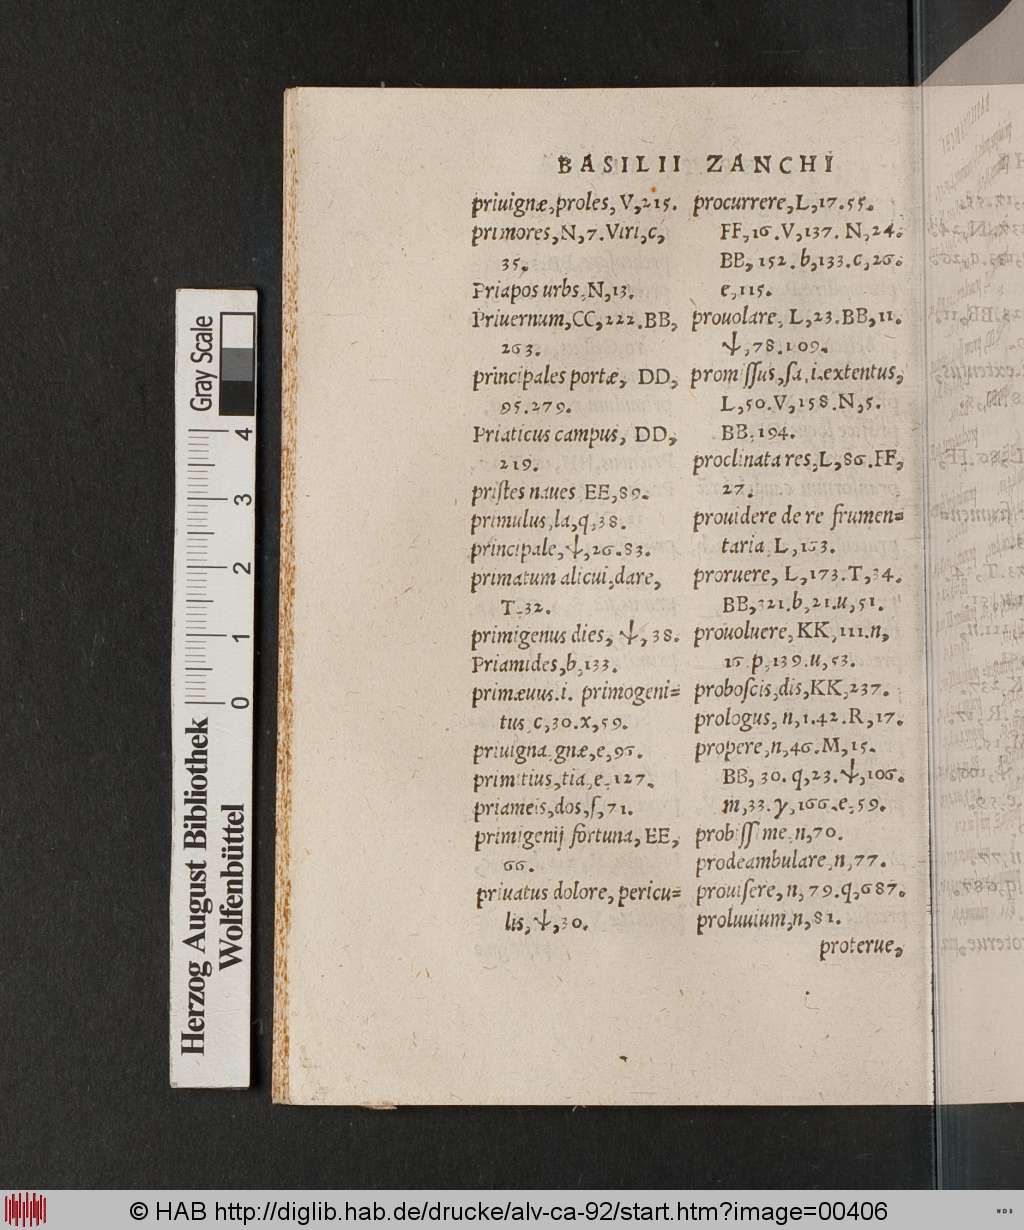 BASILII ZANCHI
priuignæ,proles, V,215.
primores,N,7.Viri,c,
35.
Priapos urbs,N,13.
Priuernum,CC,222.BB,
263.
principales portæ, DD,
95.279.
Priaticus campus, DD,
219.
priſtes naues EE,89.
primulus,la,q,38.
principale,Ψ,26.83.
primatum alicui,dare,
T.32.
primigenus dies, Ψ,38.
Priamides,b,133.
primæuus.i. primogeni=
tus c,30.x,59.
priuigna gnæ,e,96.
primitius,tia,e,127.
priameis,dos,ſ,71.
primigenij fortuna, EE,
66.
priuatus dolore, pericu=
lis,Ψ,30.
procurrere,L,17.55.
FF,16.V,137. N,24.
BB,152.b,133.c,26.
e,115.
prouolare, L,23.BB,11.
Ψ,78.109.
promiſſus,ſa,i.extentus,
L,50.V,158.N,5.
BB.194.
proclinata res,L,86.FF,
27.
prouidere de re frumen=
taria L,163.
proruere, L,173.T,34.
BB,321.b,21.u,51.
prouoluere,KK,111.n,
16 p,139.u,53.
proboſcis,dis,KK,237.
prologus,n,1.42.R,17.
propere,n,46.M,15.
BB,30.q,23.Ψ,106.
m,33.y,166.e,59.
probiſſime,n,70.
prodeambulare,n,77.
prouiſere,n,79.q,687.
proluuium,n,81.
proterue,
Gray Scale
0 1 2 3 4
Herzog August Bibliothek
Wolfenbüttel
© HAB http://diglib.hab.de/drucke/alv-ca-92/start.htm?image=00406